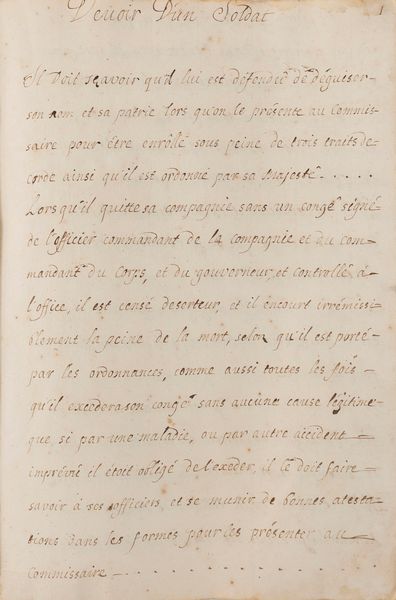 Devoir D'un Soldat
1
Il Doit scavoir qu'il lui est défendüe de déguiser
son nom et sa patrie lors qu'on le présente au Commis-
saire pour être enrollé sous peine de trois traits de
corde ainsi qu'il est ordonné par sa Majesté . . . . .
Lorsqu'il quitte sa compagnie sans un congé signé
de l'officier commandant de la compagnie et du com-
mandant du Corps, et du gouverneur, et controllé à
l'office, il est censé deserteur, et il encourt irrémissi-
blement la peine de la mort, selon qu'il est porté
par les ordonnances, comme aussi toutes les fois
qu'il excedera son congé sans aucune cause légitime
que si par une maladie, ou par autre accident
imprévû il étoit obligé de l'exeder, il le doit faire
savoir à ses officiers, et se munir de bonnes atesta-
tions dans les formes pour les présenter au
Commissaire . . . . . . . . . .